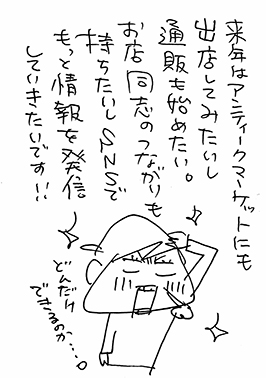 来年はアンティークマーケットにも
出店してみたいし
通販も始めたい。
お店同志のつながりも
持ちたいしSNSで
もっと情報を発信
していきたいです!!
どんだけ
できるのか…。